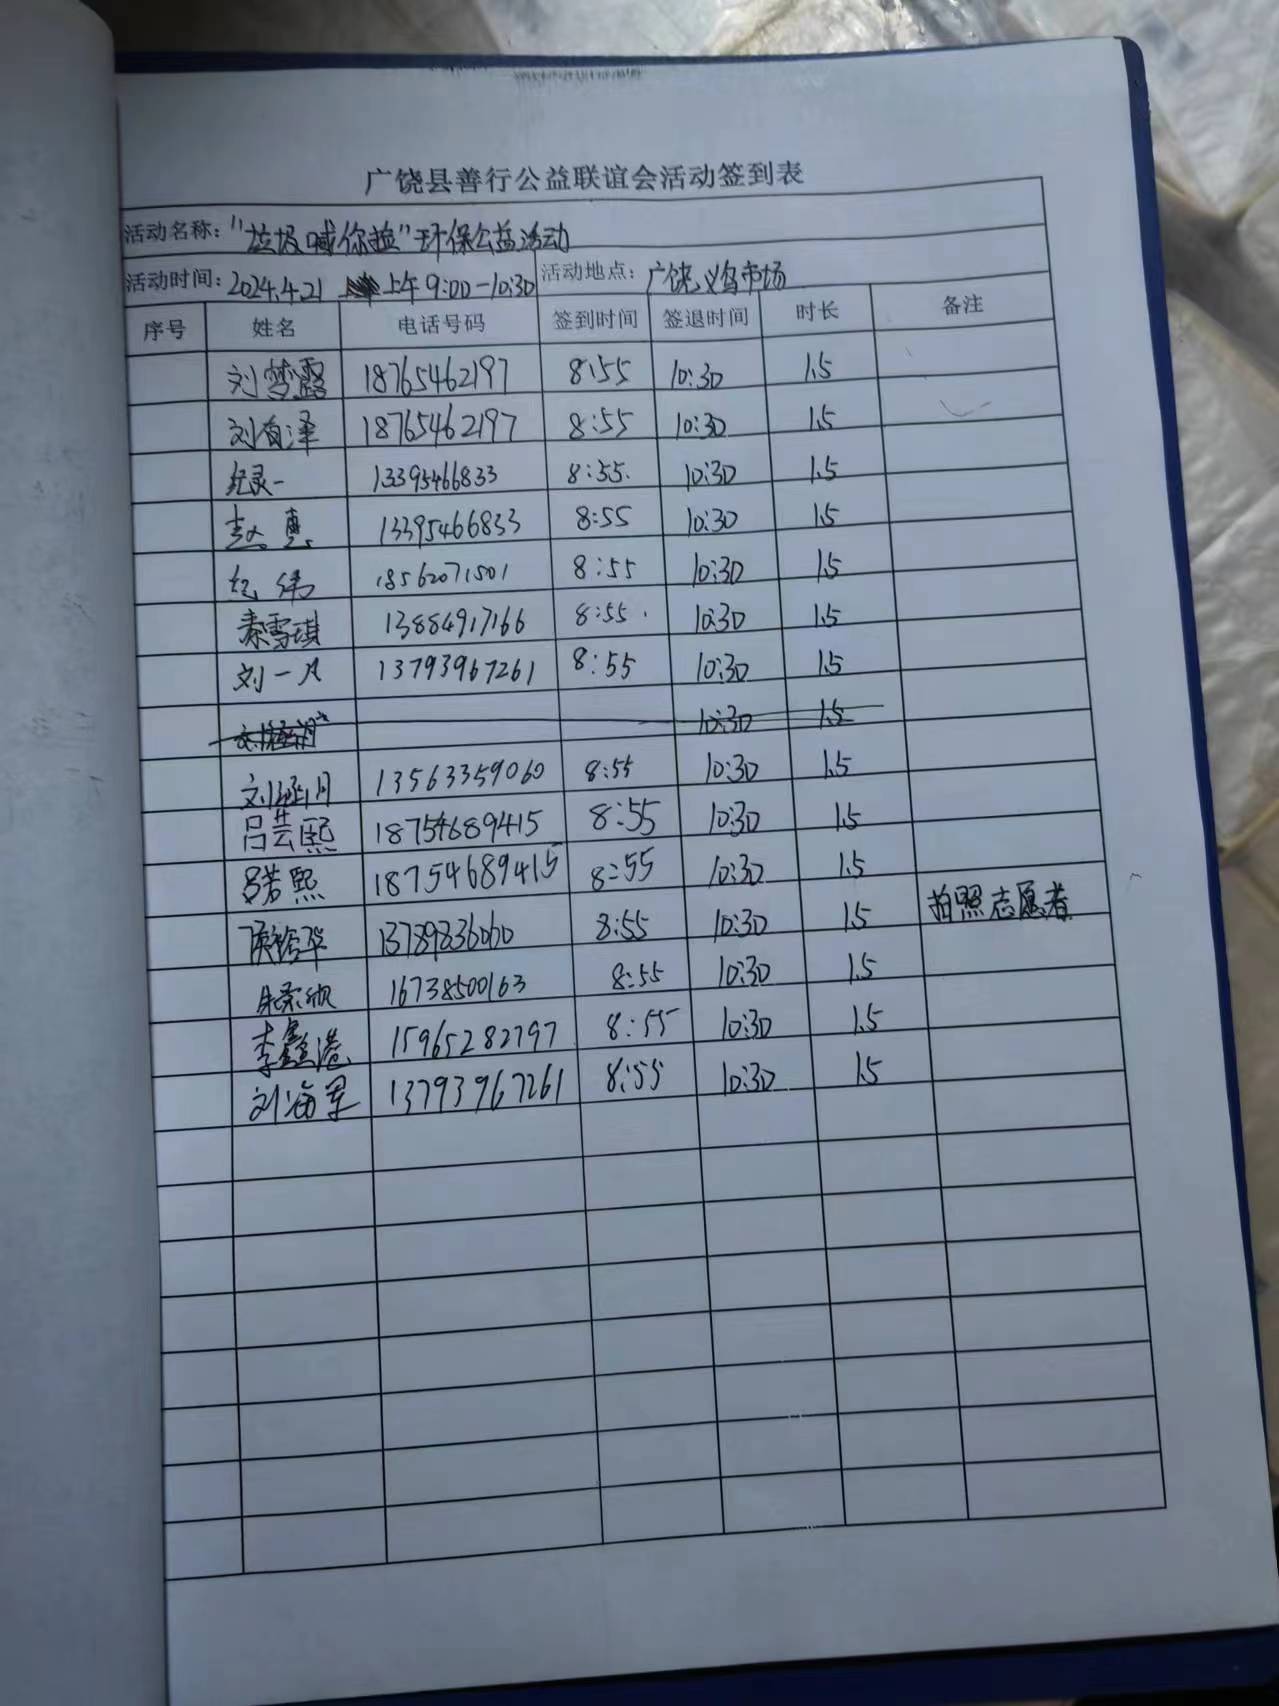 广饶县善行公益联谊会活动签到表
活动名称："垃圾喊你捡"环保公益活动
活动时间：2024.4.21 上午9:00-10:30 活动地点：广饶义乌市场
序号 姓名 电话号码 签到时间 签退时间 时长 备注
刘梦露 18765462197 8:55 10:30 1.5
刘有泽 18765462197 8:55 10:30 1.5
纪录一 13395466833 8:55 10:30 1.5
赵惠 13395466833 8:55 10:30 1.5
纪伟 18562071501 8:55 10:30 1.5
秦雪琪 13884917166 8:55 10:30 1.5
刘一凡 13793967261 8:55 10:30 1.5
10:30 1.5
刘涵月 13563359060 8:55 10:30 1.5
吕芸熙 18754689415 8:55 10:30 1.5
吕若熙 18754689415 8:55 10:30 1.5
13789836060 8:55 10:30 1.5 拍照志愿者
16738500163 8:55 10:30 1.5
李鑫港 15965282797 8:55 10:30 1.5
刘海军 13793967261 8:55 10:30 1.5